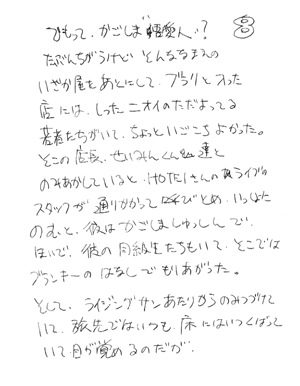 ひもって、かごしま 人、? ⑧
たぶんちがうけど そんななまえの
いざか屋をあとにして、ブラリと入った
店には、しったニオイのただよってる
若者たちがいて、ちょっといごこちよかった。
そこの店長、せいみんくん 連と
のみあかしていると、HOTEIさんの ライブの
スタッフが 通りかかって 呼びとめ、いっぱい
のむと、彼はかごしましゅっしんで、
ほいで、彼の同級生たちもいて、そこでは
ブランキーの はなしで もりあがった。
そして、ライジングサンあたりからのみつづけて
いて、旅先ではいつも、床にはいつくばって
いて目が覚めるのだが、